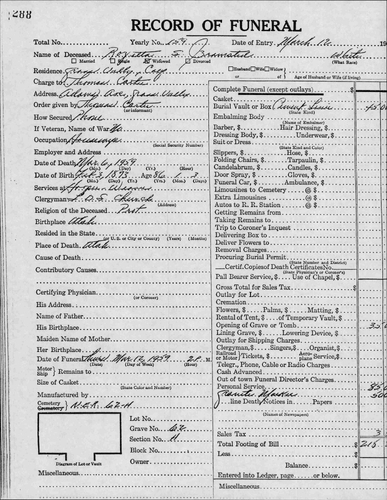 288
RECORD OF FUNERAL
Total No. Yearly No. Date of Entry March 12 19
Name of Deceased White
Married Widowed Divorced (What Race)
Residence Grass Valley, Calif Husband Wife Widow
Charge to Thomas Carter Age of Husband or Wife (if living)
Address Ave, Grass Valley
Order given by Thomas Carter
How Secured Phone
If Veteran, Name of War No
Occupation Housewife
Employer and Address
Date of Death Mar 6, 1959
(Mo.) (Day) (Yr.)
Date of Birth 3, 1875 Age 86 1 3
(Mo.) (Day) (Yr.) (Yrs.) (Mos.) (Days)
Services at
Clergyman L. D. S. Church
Religion of the Deceased Prot.
Birthplace Utah
Resided in the State
(or U. S. or City or County) (Years) (Months)
Place of Death Utah
Cause of Death
Contributory Causes
Certifying Physician
(or Coroner)
His Address
Name of Father
His Birthplace
Maiden Name of Mother
Her Birthplace
Date of Funeral Thurs Mar 12, 1959 2 P. M.
(Date) (Day of Week) (Hour)
Motor Ship Remains to
Size of Casket
(State Color and Number)
Manufactured by
Cemetery Crematory N.E.R. 62-H
Lot No.
Grave No. 62
Section No. H
Block No.
Owner
Diagram of Lot or Vault
Miscellaneous
Complete Funeral (except outlays) $
Casket
Burial Vault or Box 45.00
(State Kind)
Embalming Body
(Name of Embalmer)
Barber, $ Hair Dressing, $
Dressing Body, $ Underwear, $
Suit or Dress
(State Kind and Color)
Slippers, $ Hose, $
Folding Chairs, $ Tarpaulin, $
Candelabrum, $ Candles, $
Door Spray, $ Gloves, $
Funeral Car, $ Ambulance, $
Limousines to Cemetery @ $
Extra Limousines @ $
Autos to R. R. Station @ $
Getting Remains from
Taking Remains to
Trip to Coroner's Inquest
Delivering Box to
Deliver Flowers to
Removal Charges
Procuring Burial Permit
(State District and Number)
Certif. Copies of Death Certificates No.
Pall Bearer Service, $ Use of Chapel, $
Gross Total for Sales Tax $
Outlay for Lot
Cremation
Flowers, $ Palms, $ Matting, $
Rental of Tent, $ of Temporary Vault, $
Opening of Grave or Tomb 35.0
Lining Grave, $ Lowering Device, $
Outlay for Shipping Charges
Clergyman, $ Singers, $ Organist, $
Railroad or Motor Tickets, $ Aeroplane Service, $
Telegr., Phone, Cable or Radio Charges
Cash Advanced
Out of town Funeral Director's Charges
Personal Service 85.0
Granite Marker 50.0
line Death Notices in Papers
(Names of Newspapers)
Sales Tax $ 3
Total Footing of Bill $ 218
Less $
Balance $
Entered into Ledger, page or below.
Miscellaneous